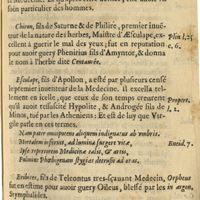 soin particulier des hommes.
Chiron, fils de Saturne & de Philire, premier inuẽ-
teur de la nature des herbes, Maistre d'Æsculape, ex-
cellent à guerir le mal des yeux, fut en reputation
pour auoir guery Phenirus fils d'Amyntor, & donna
le nom à l'herbe dite Centaurée.
Plin l. 25.
c. 6.
Esculape, fils d'Apollon, a esté par plusieurs censé
le premier inuenteur de la Medecine. Il excella telle-
ment en icelle, que ceux de son temps creurent
qu'il auoit ressuscité Hypolite, & Androgée fils de
Minos, tué par les Atheniens; Et est de luy que Vir-
gile parle en ces termes.
Propert.
l. 2.
Nam pater omnipotens aliquem indignatus ab vmbris
Mortalem infernis, ad lumina surgere vitæ,
Ipse repertorem Medicinæ talis, & artis,
Fulmine Phœbigenam stygias detrusit ad vndas.
Eneid. 7.
Eribotes, fils de Teleontus tres-sçauant Medecin,
fut en estime pour auoir guery Oïleus, blessé par les
Stymphalides.
Orpheus
in argon.